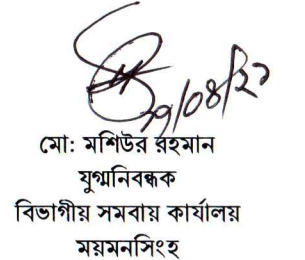 ২৯/০৪/২১
মো: মশিউর রহমান
যুগ্মনিবন্ধক
বিভাগীয় সমবায় কার্যালয়
ময়মনসিংহ